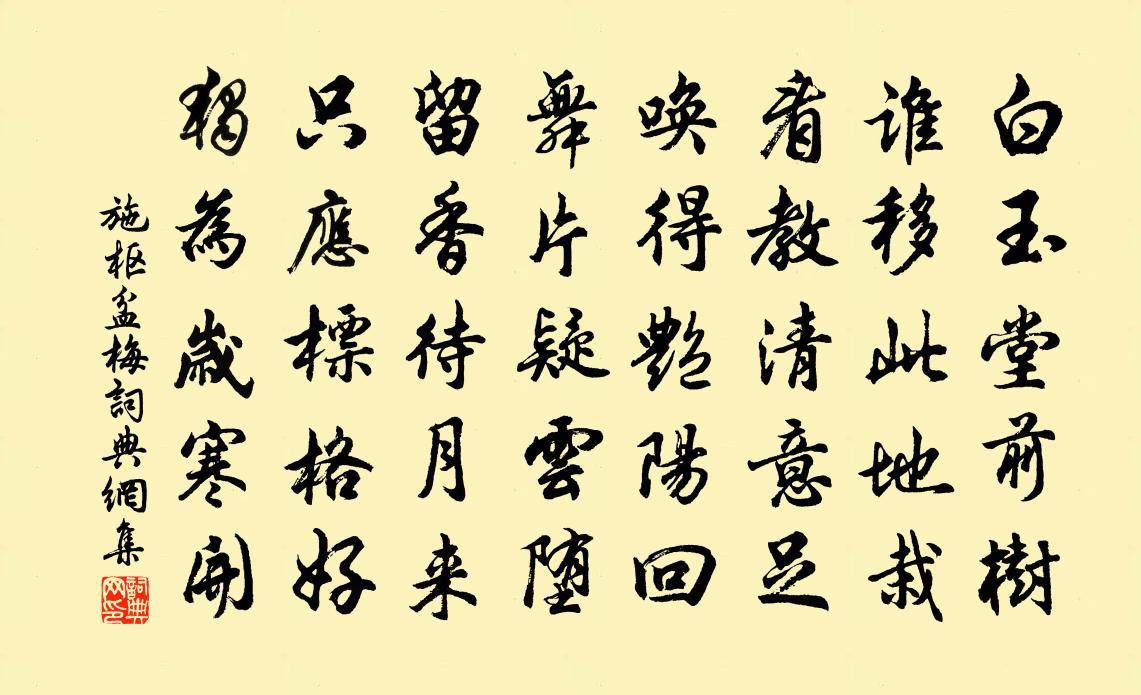 白玉堂前樹
誰移此地栽
看教清意足
喚得艷陽回
舞片疑雲墮
留香待月来
只應標格好
獨為歲寒開
施枢盆梅詞典網集
詞典网印